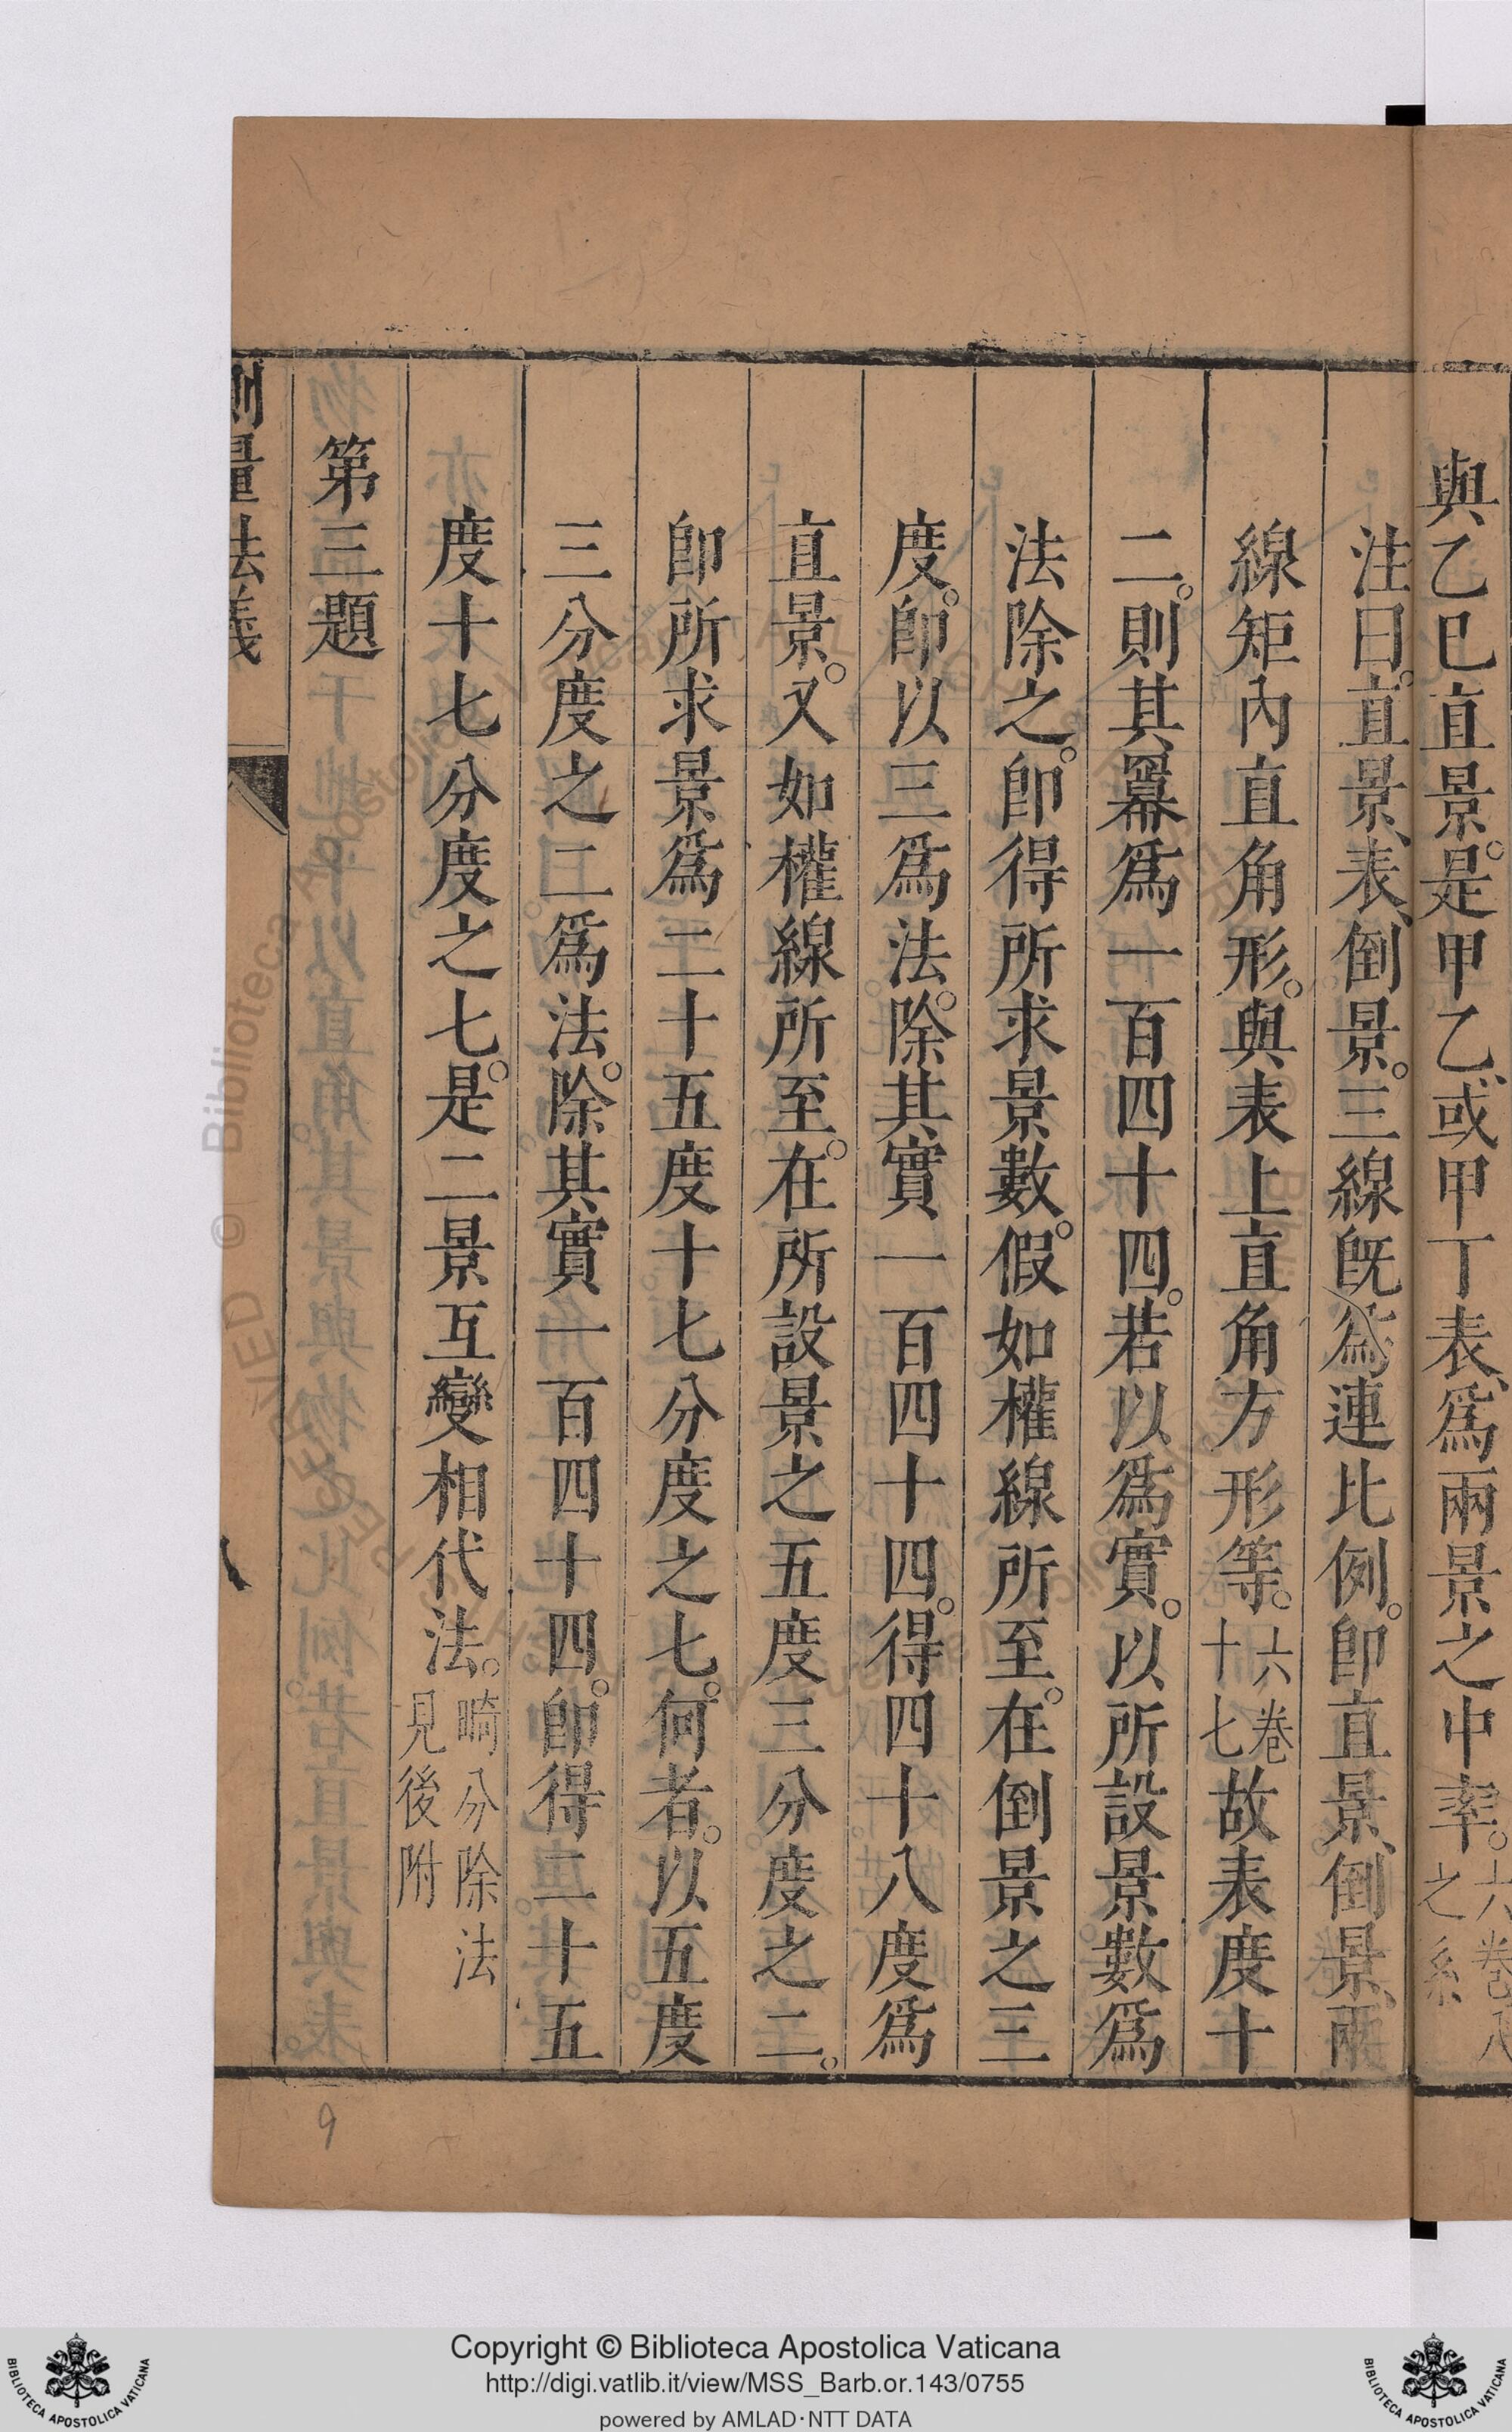 與乙巳直景。是甲乙、或甲丁表、爲兩景之中率。六卷八之系
注曰。直景、表、倒景。三線旣爲連比例。卽直景、倒景、兩
線矩內直角形。與表上直角方形等。六卷十七故表度十
二。則其羃爲一百四十四。若以爲實。以所設景數爲
法除之。卽得所求景數。假如權線所至。在倒景之三
度。卽以三爲法。除其實一百四十四。得四十八度爲
直景。又如權線所至。在所設景之五度三分度之二。
卽所求景爲二十五度十七分度之七。何者。以五度
三分度之二爲法。除其實一百四十四。卽得二十五
度十七分度之七。是二景互變相代法。畸分除法見後附
第三題
測量法義
八
9
© Biblioteca Apostolica Vaticana
Copyright © Biblioteca Apostolica Vaticana
http://digi.vatlib.it/view/MSS_Barb.or.143/0755
powered by AMLAD·NTT DATA
BIBLIOTECA APOSTOLICA VATICANA
BIBLIOTECA APOSTOLICA VATICANA